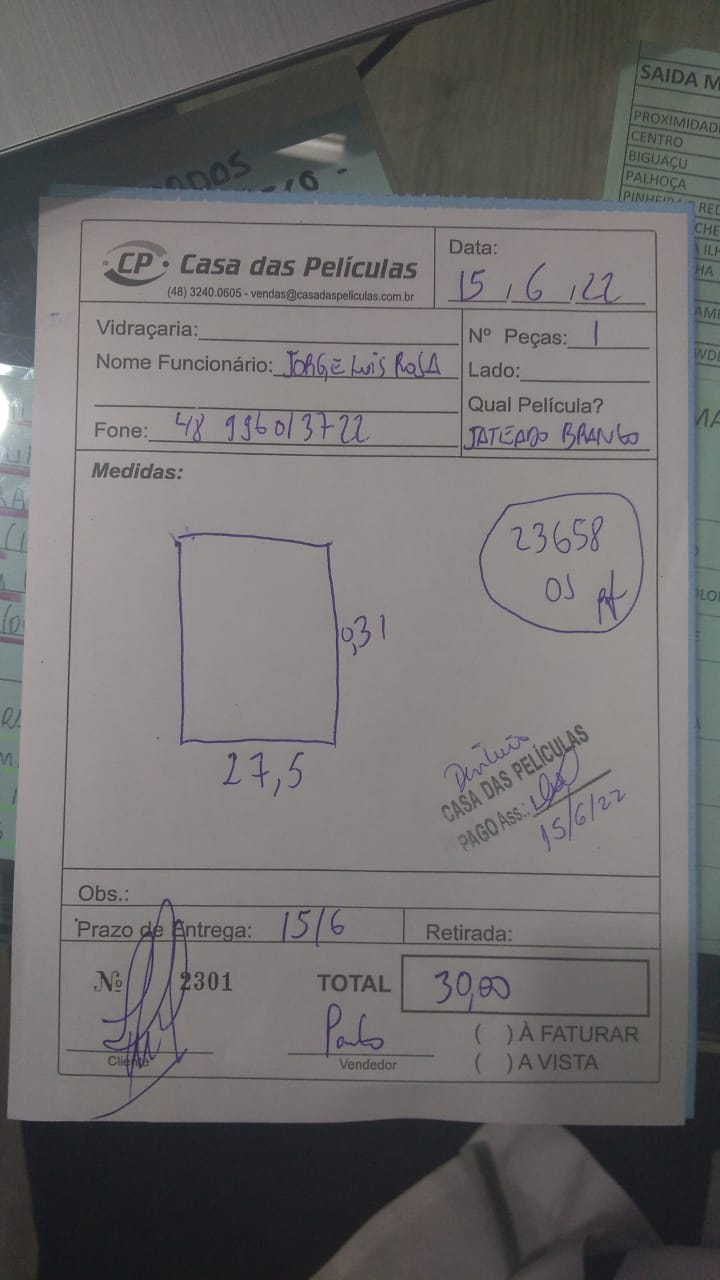 SAIDA M
PROXIMIDAD
CENTRO
BIGUAÇU
PALHOÇA
CP Casa das Películas
(48) 3240.0605 - vendas@casadaspeliculas.com.br
Data:
15, 6, 22
Vidraçaria:
Nome Funcionário: JORGE LUIS ROSA
Fone: 48 996013722
Nº Peças: 1
Lado:
Qual Película?
JATEADO BRANCO
Medidas:
23658
OS
0,31
27,5
CASA DAS PELÍCULAS
PAGO Ass.:
15/6/22
Obs.:
Prazo de Entrega: 15/6
Retirada:
Nº 2301
TOTAL 30,00
Cliente
Vendedor
( ) À FATURAR
( ) A VISTA